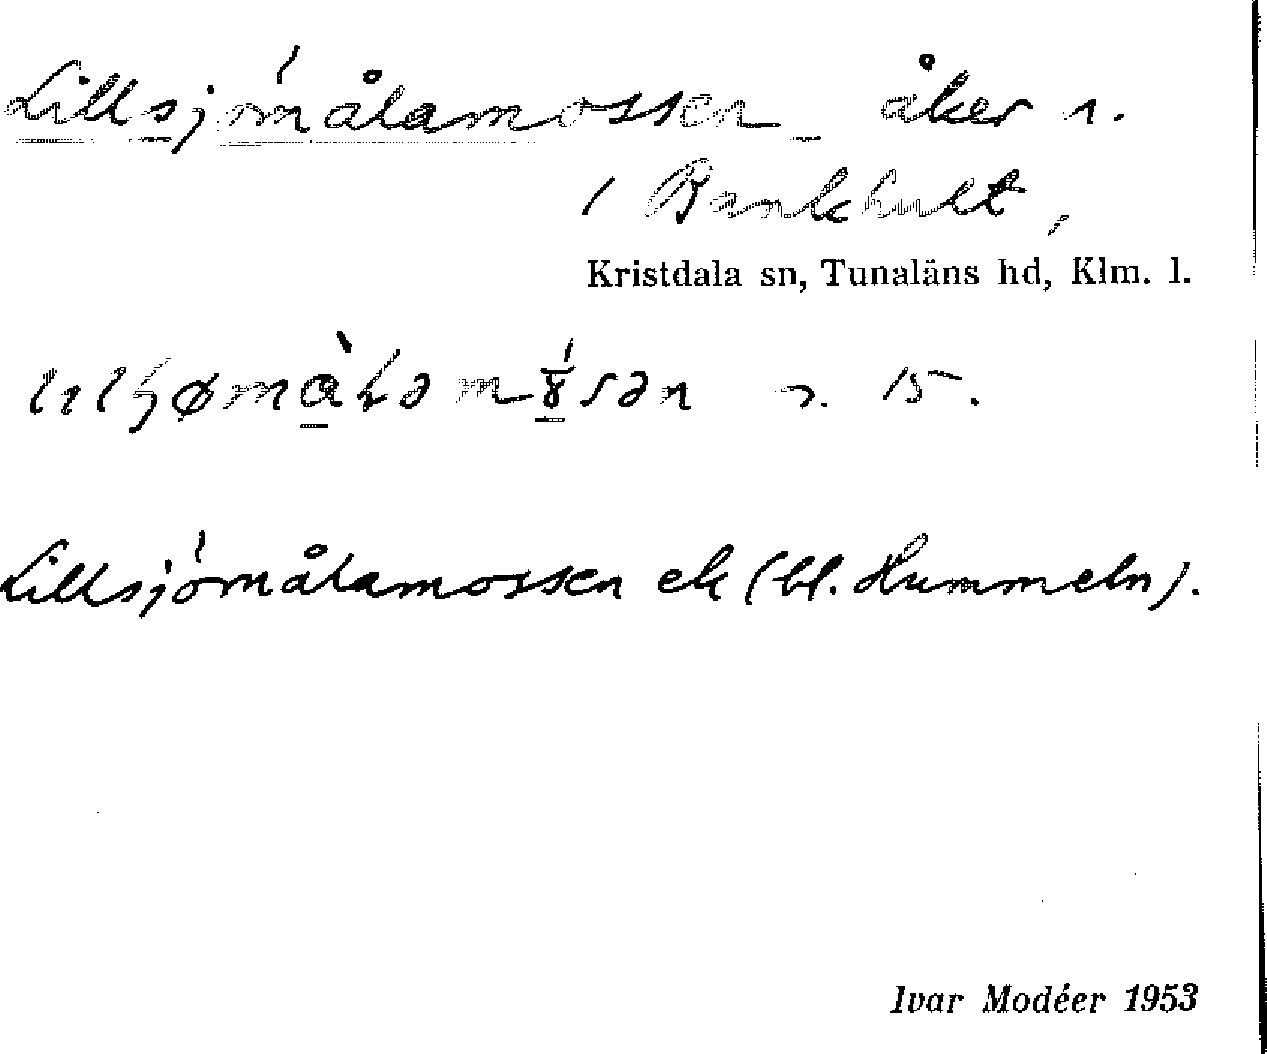 Lillsjömålamossen åker 1.
i Bankhult,
Kristdala sn, Tunaläns hd, Klm. l.
15.
Lillsjömålamossen ek (bl. Hummeln).
Ivar Modéer 1953